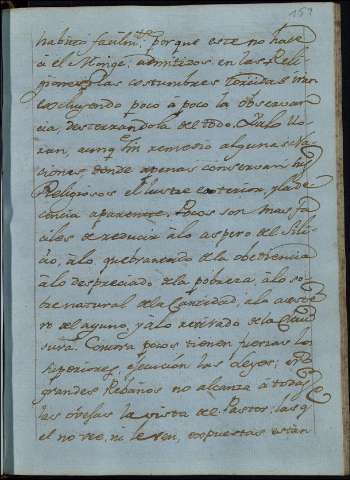 159
habito facilm.te, porque este no hace
â el Monge; admitidos en las Reli-
giones, las costumbres torcidas van
excluyendo poco â poco la observan-
cia, desterrandola del todo. Assi lo llo-
ran, aunq. sin remedio algunas Na-
ciones, donde apenas conservan los
Religiosos el lustre exterior, y la de-
cencia aparente. Pocos son mas fa-
ciles de reducir â lo aspero del Sili-
cio, â lo quebrantado de la obediencia
â lo despreciado de la pobreza, â lo so-
brenatural de la Caridad, â lo auste-
ro del ayuno, y â lo retirado de la Clau
sura. Contra pocos tienen fuerzas los
superiores, ejecucion las leyes; en
grandes Rebaños no alcanza â todas
las ovejas la vista de Pastor, las q.
el no vee, ni le ven, expuestas estan